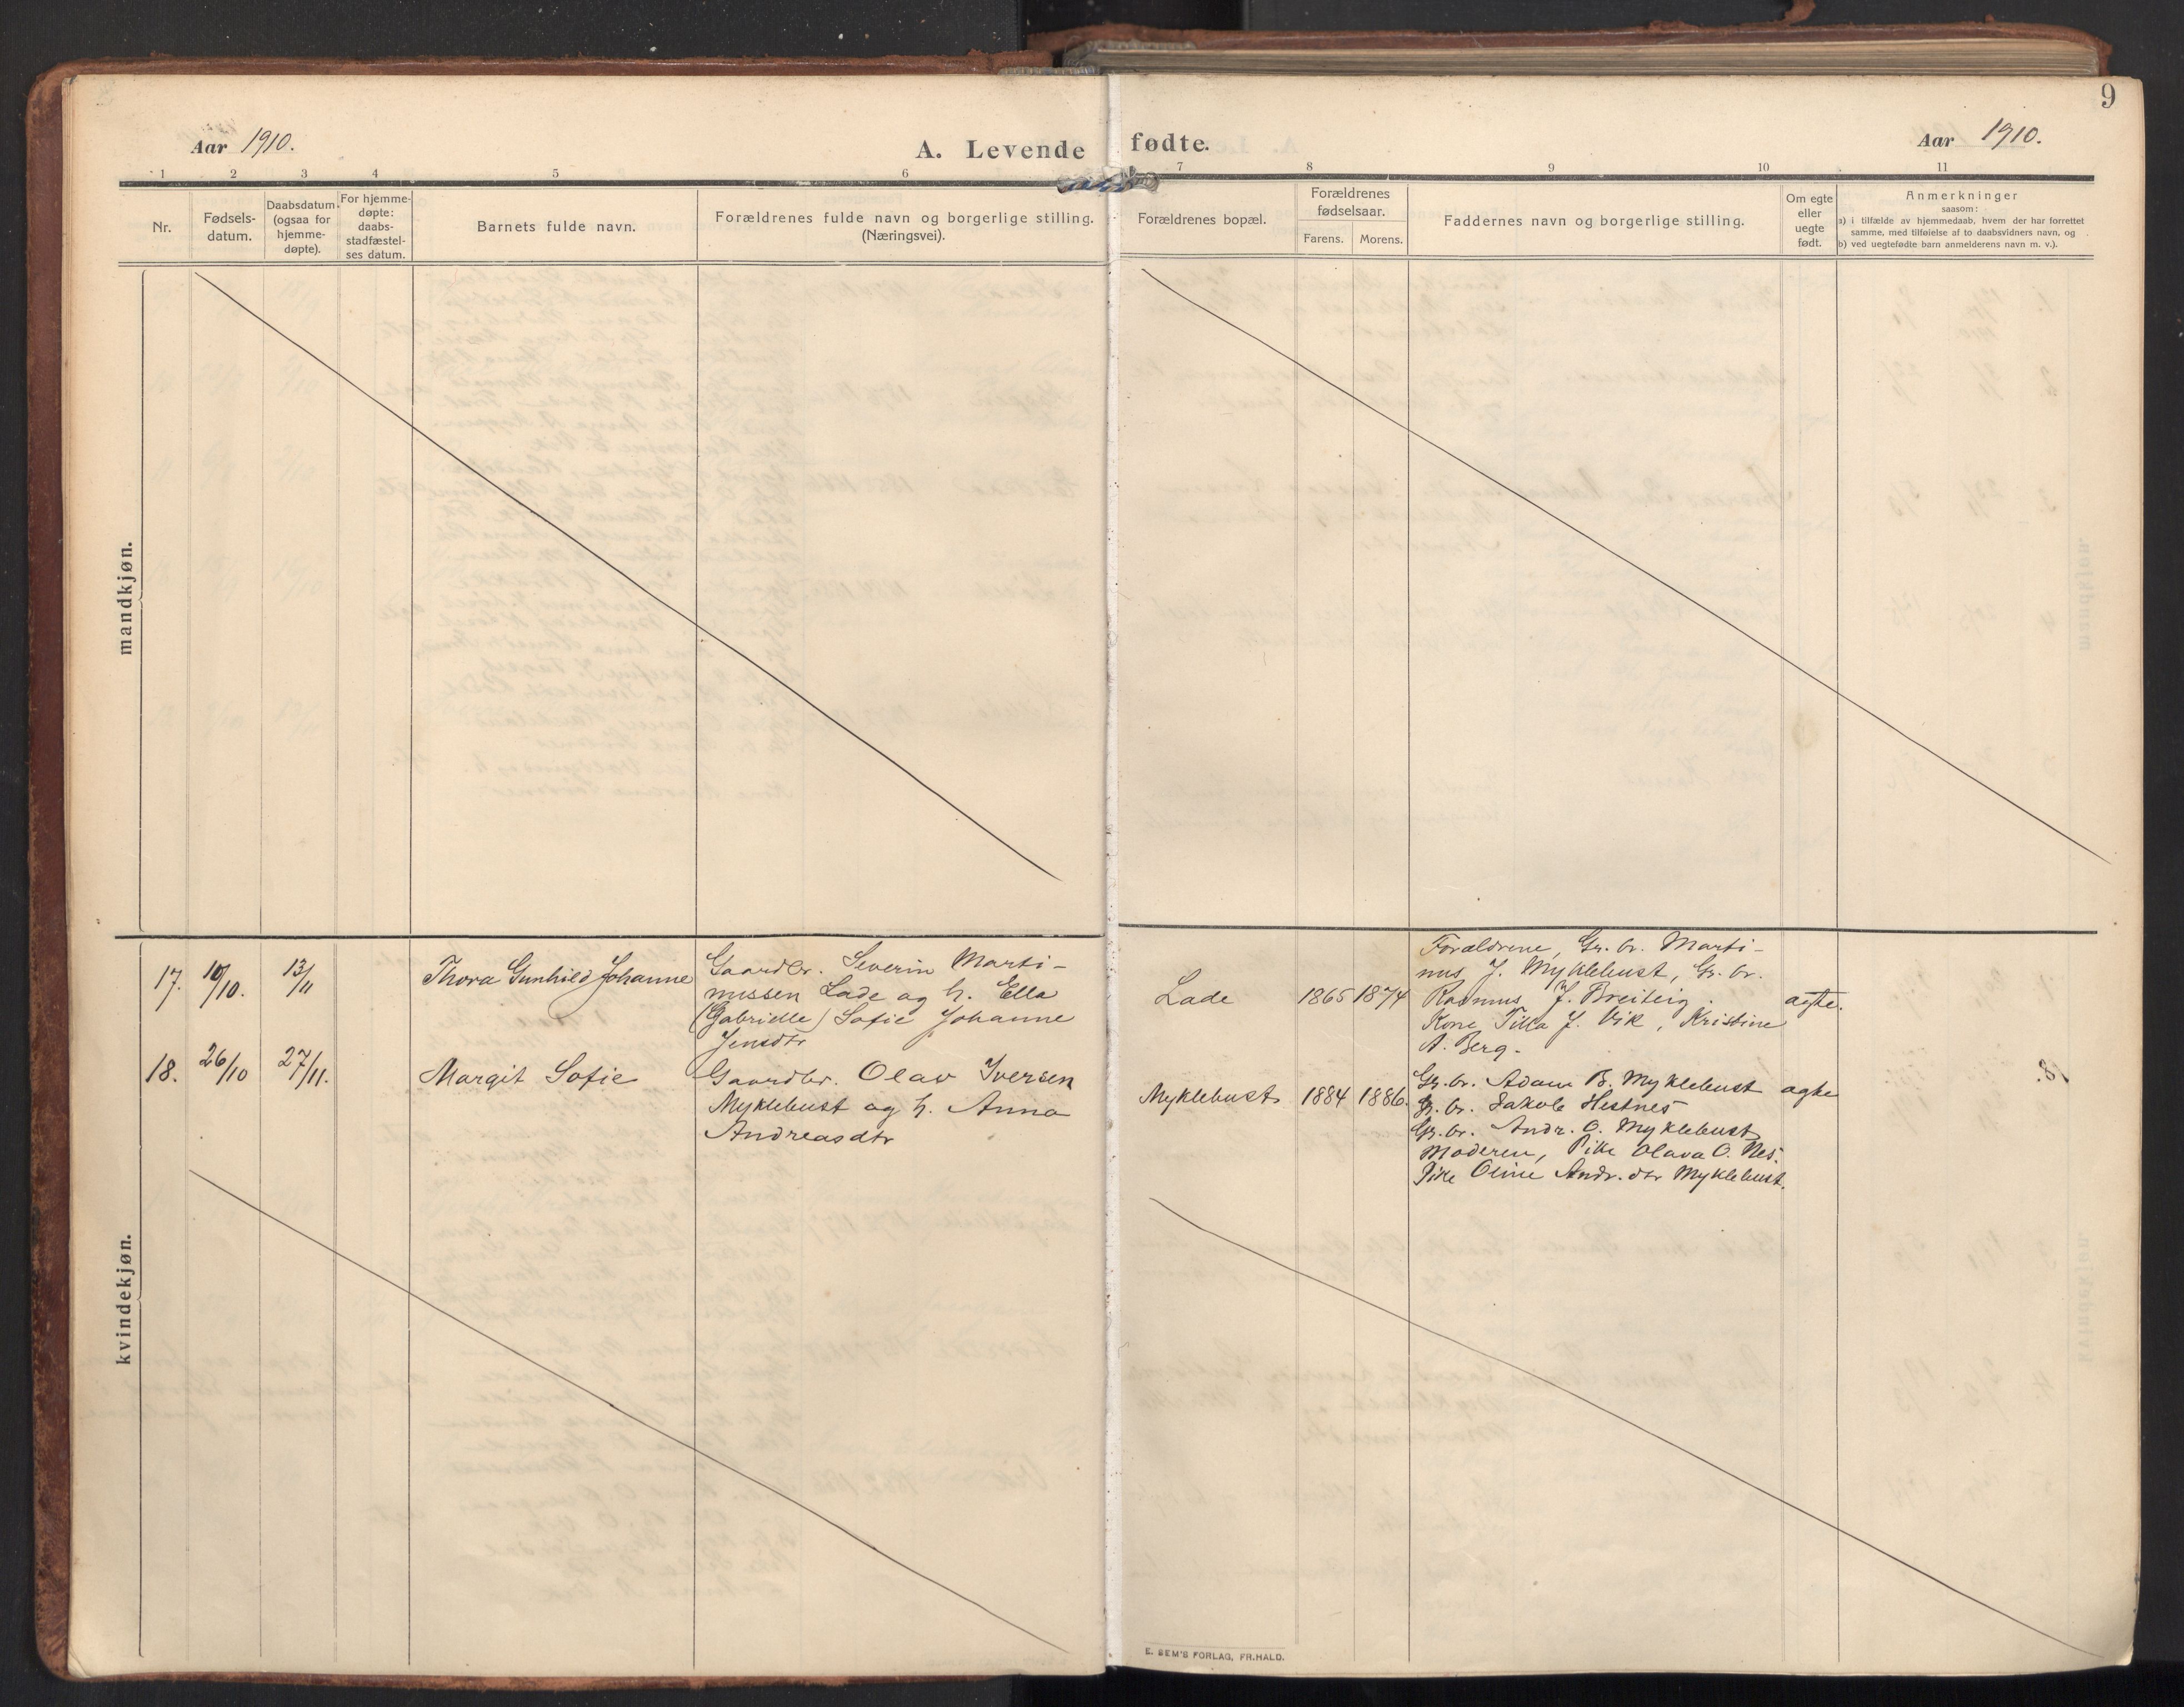 9
Aar 1910.
A. Levende fødte.
Aar 1910.
1 2 3 4 5 6 7 8 9 10 11
Nr.
Fødsels-
datum.
Daabsdatum
(ogsaa for
hjemme-
døpte).
For hjemme-
døpte:
daabs-
stadfæstel-
ses datum.
Barnets fulde navn.
Forældrenes fulde navn og borgerlige stilling.
(Næringsvei).
Forældrenes bopæl.
Forældrenes
fødselsaar.
Farens. Morens.
Faddernes navn og borgerlige stilling.
Om egte
eller
uegte
født.
Anmerkninger
saasom:
a) i tilfælde av hjemmedaab, hvem der har forrettet
samme, med tilføielse af to daabsvidners navn, og
b) ved uegtefødte barn anmelderens navn m. v.).
mandkjøn.
kvindekjøn.
17. 10/10. 13/11 Thora Gunhild Johanne
Gaardbr. Severin Marti-
nussen Lade og h. Ella
(Gabrielle) Sofie Johanne
Jensdtr
Lade 1865 1874
Forældrene, Gr. br. Marti-
nus J. Myklebust, Gr. br.
Rasmus J. Breiteig.
Kone Tilla J. Vik, Kristine
A. Berg.
ægte.
18. 26/10 27/11. Margit Sofie
Gaardbr. Olav Iversen
Myklebust og h. Anna
Andreasdtr
Myklebust 1884 1886.
Gr. br. Adam B. Myklebust
Gr. br. Jakob Hestnes
Gr. br. Andr. O. Myklebust
Moderen, Pike Olava O. Nes.
Pike Oline Andr. dtr Myklebust.
ægte
E. SEM'S FORLAG, FR.HALD.